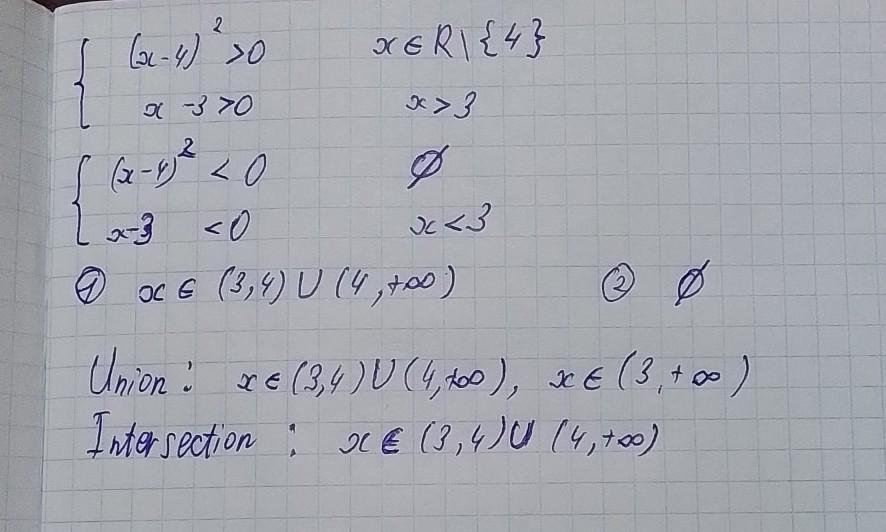 (x-4)² >0 x ∈ R \ {4}
x -3 >0 x > 3
(x-4)² < 0 ∅
x-3 <0 x < 3
① x ∈ (3,4) ∪ (4,+∞) ② ∅
Union: x ∈ (3,4) ∪ (4,+∞), x ∈ (3,+∞)
Intersection: x ∈ (3,4) ∪ (4,+∞)